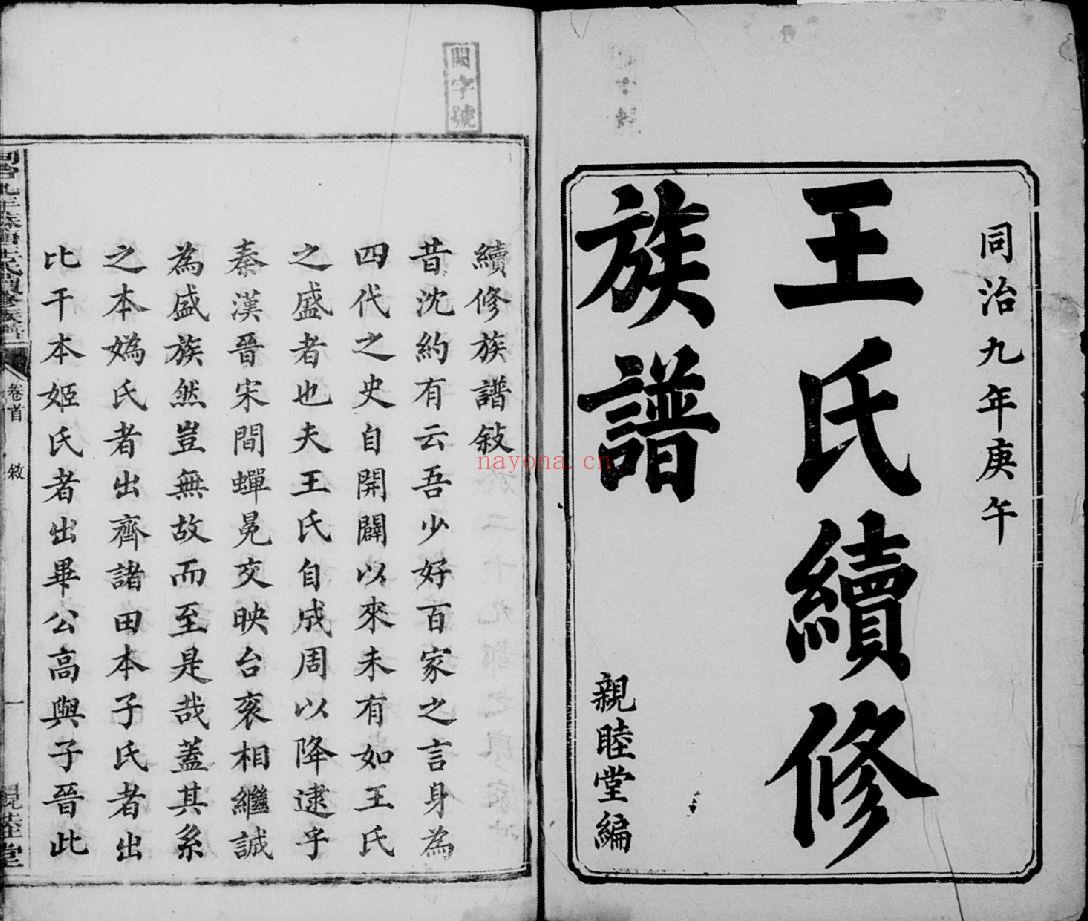 同治九年庚午
王氏續修
族譜
親睦堂編
閑字號
續修族譜敍
昔沈約有云吾少好百家之言身為
四代之史自開闢以來未有如王氏
之盛者也夫王氏自成周以降逮乎
秦漢晉宋間蟬冕交映台衮相繼誠
為盛族然豈無故而至是哉蓋其系
之本媯氏者出齊諸田本子氏者出
比干本姬氏者出畢公高與子晉此
卷首
敘
一
親睦堂
nayona.cn